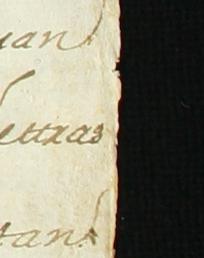 uan
ettras
tan